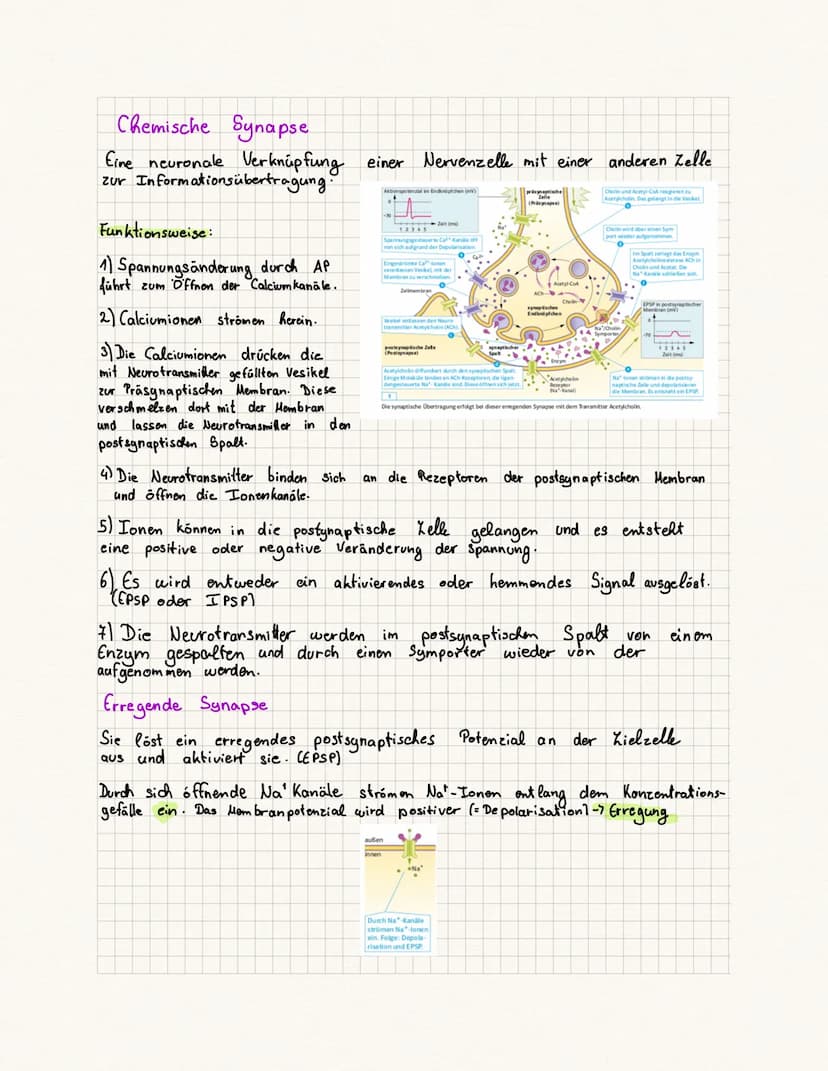 Chemische Synapse
Eine neuronale Verknüpfung einer Nervenzelle mit einer anderen Zelle
zur Informationsübertragung.
Funktionsweise:
1) Spannungsänderung durch AP
führt zum Öffnen der Calciumkanäle.
2) Calciumionen strömen herein.
3) Die Calciumionen drücken die
mit Neurotransmitter gefüllten Vesikel
zur Präsynaptischen Membran. Diese
verschmelzen dort mit der Membran
und lassen die Neurotransmitter in den
postsynaptischen Spalt.
Aktionspotenzial im Endknöpfchen (mV)
0
-70
1 2 3 4 5
Zeit (ms)
Spannungsgesteuerte Ca²⁺-Kanäle öff-
nen sich aufgrund der Depolarisation.
Eingeströmte Ca²⁺-Ionen
veranlassen Vesikel, mit der
Membran zu verschmelzen.
Zellmembran
Vesikel entlassen den Neuro-
transmitter Acetylcholin (ACh).
postsynaptische Zelle
(Postsynapse)
synaptischer
Spalt
Acetylcholin diffundiert durch den synaptischen Spalt.
Einige Moleküle binden an ACh-Rezeptoren, die ligan-
dengesteuerte Na⁺-Kanäle sind. Diese öffnen sich jetzt.
präsynaptische
Zelle
(Präsynapse)
Na⁺
Ca²⁺
Acetyl-CoA
ACh
Cholin
synaptisches
Endknöpfchen
Na⁺/Cholin-
Symporter
Enzym
Acetylcholin-
Rezeptor
(Na⁺-Kanal)
Cholin und Acetyl-CoA reagieren zu
Acetylcholin. Das gelangt in die Vesikel.
Cholin wird über einen Sym-
port wieder aufgenommen.
Im Spalt zerlegt das Enzym
Acetylcholinesterase ACh in
Cholin und Acetat. Die
Na⁺-Kanäle schließen sich.
EPSP in postsynaptischer
Membran (mV)
0
-70
1 2 3 4 5
Zeit (ms)
Na⁺-Ionen strömen in die postsy-
naptische Zelle und depolarisieren
die Membran. Es entsteht ein EPSP.
Die synaptische Übertragung erfolgt bei dieser erregenden Synapse mit dem Transmitter Acetylcholin.
4) Die Neurotransmitter binden sich an die Rezeptoren der postsynaptischen Membran
und öffnen die Ionenkanäle.
5) Ionen können in die postynaptische Zelle gelangen und es entsteht
eine positive oder negative Veränderung der Spannung.
6) Es wird entweder ein aktivierendes oder hemmendes Signal ausgelöst.
(EPSP oder IPSP)
7) Die Neurotransmitter werden im postsynaptischen Spalt von einem
Enzym gespalten und durch einen Symporter wieder von der
aufgenommen werden.
Erregende Synapse
Sie löst ein erregendes postsynaptisches Potenzial an der Zielzelle
aus und aktiviert sie. (EPSP)
Durch sich öffnende Na⁺ Kanäle strömen Na⁺-Ionen entlang dem Konzentrations-
gefälle ein. Das Membranpotenzial wird positiver (= Depolarisation) → Erregung
außen
innen
Na⁺
Durch Na⁺-Kanäle
strömen Na⁺-Ionen
ein. Folge: Depola-
risation und EPSP.